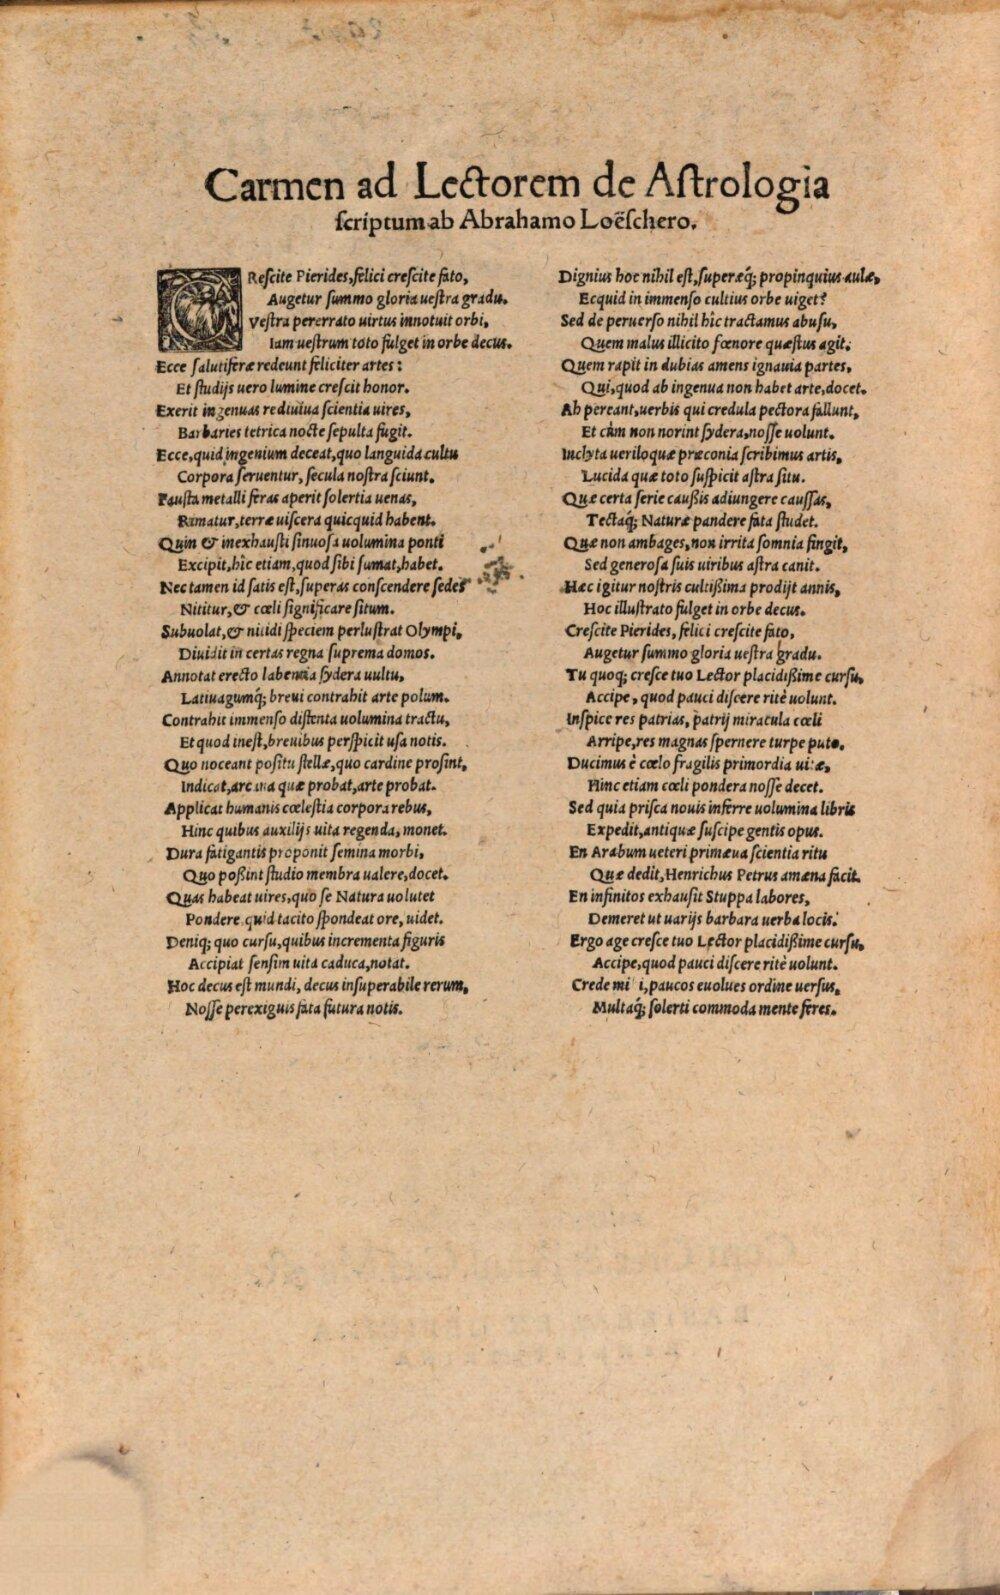 Carmen ad Lectorem de Astrologia
scriptum ab Abrahamo Loëschero.
CRescite Pierides, felici crescite fato,
Augetur summo gloria uestra gradu.
Vestra pererrato uirtus innotuit orbi,
Iam uestrum toto fulget in orbe decus.
Ecce salutiferæ redeunt feliciter artes:
Et studijs uero lumine crescit honor.
Exerit ingenuas rediuiua scientia uires,
Barbaries tetrica nocte sepulta fugit.
Ecce, quid ingenium deceat, quo languida cultu
Corpora seruentur, secula nostra sciunt.
Fausta metalliferas aperit solertia uenas,
Rimatur, terræ uiscera quicquid habent.
Quin & inexhausti sinuosa uolumina ponti
Excipit, hîc etiam, quod sibi sumat, habet.
Nec tamen id satis est, superas conscendere sedes
Nititur, & cœli significare situm.
Subuolat, & nitidi speciem perlustrat Olympi,
Diuidit in certas regna suprema domos.
Annotat erecto labentia sydera uultu,
Latiuagumq́; breui contrahit arte polum.
Contrahit immenso distenta uolumina tractu,
Et quod inest, breuibus perspicit usa notis.
Quo noceant positu stellæ, quo cardine prosint,
Indicat, arcana quæ probat, arte probat.
Applicat humanis cœlestia corpora rebus,
Hinc quibus auxilijs uita regenda, monet.
Dura fatigantis proponit semina morbi,
Quo poßint studio membra ualere, docet.
Quas habeat uires, quo se Natura uolutet
Pondere quid tacito spondeat ore, uidet.
Deniq; quo cursu, quibus incrementa figuris
Accipiat sensim uita caduca, notat.
Hoc decus est mundi, decus insuperabile rerum,
Nosse perexiguis fata futura notis.
Dignius hoc nihil est, superæq́; propinquius aulæ,
Ecquid in immenso cultius orbe uiget?
Sed de peruerso nihil hîc tractamus abusu,
Quem malus illicito fœnore quæstus agit.
Quem rapit in dubias amens ignauia partes,
Qui, quod ab ingenua non habet arte, docet.
Ah pereant, uerbis qui credula pectora fallunt,
Et cùm non norint sydera, nosse uolunt.
Inclyta ueriloquæ præconia scribimus artis,
Lucida quæ toto suspicit astra situ.
Quæ certa serie caußis adiungere caussas,
Tectaq́; Naturæ pandere fata studet.
Quæ non ambages, non irrita somnia fingit,
Sed generosa suis uiribus astra canit.
Hæc igitur nostris cultißima prodijt annis,
Hoc illustrato fulget in orbe decus.
Crescite Pierides, felici crescite fato,
Augetur summo gloria uestra gradu.
Tu quoq; cresce tuo Lector placidißime cursu,
Accipe, quod pauci discere ritè uolunt.
Inspice res patrias, patrij miracula cœli
Arripe, res magnas spernere turpe puto.
Ducimus è cœlo fragilis primordia uitæ,
Hinc etiam cœli pondera nosse decet.
Sed quia prisca nouis inferre uolumina libris
Expedit, antiquæ suscipe gentis opus.
En Arabum ueteri primæua scientia ritu
Quæ dedit, Henrichus Petrus amœna facit.
En infinitos exhausit Stuppa labores,
Demeret ut uarijs barbara uerba locis.
Ergo age cresce tuo Lector placidißime cursu,
Accipe, quod pauci discere ritè uolunt.
Crede mihi, paucos euolues ordine uersus,
Multaq́; solerti commoda mente feres.